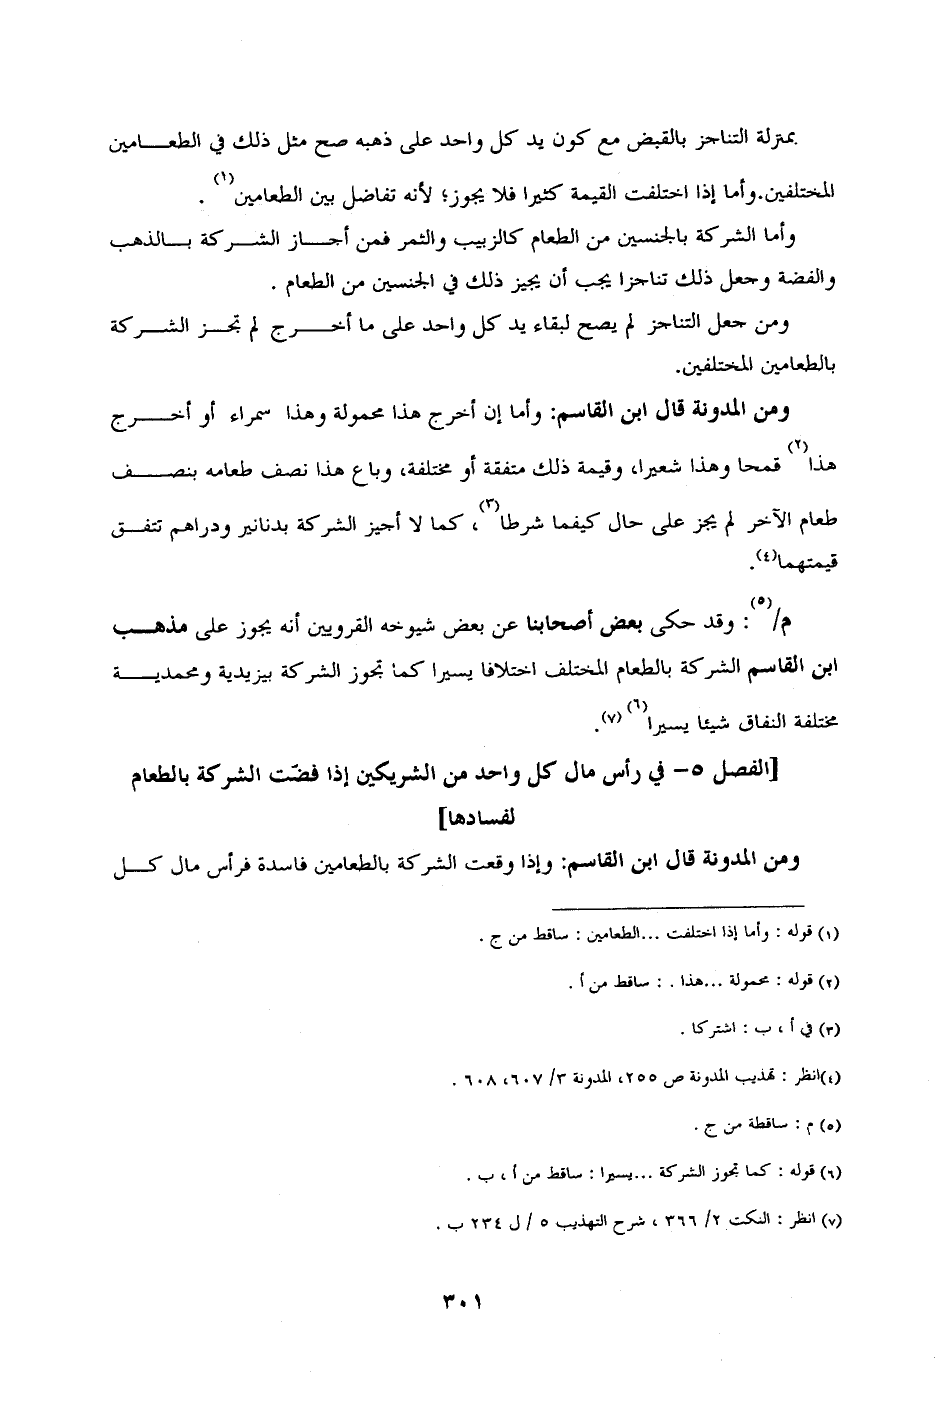 بمنزلة التناجز بالقبض مع كون يد كل واحد على ذهبه صح مثل ذلك في الطعامين
المختلفين.وأما إذا اختلفت القيمة كثيرا فلا يجوز؛ لأنه تفاضل بين الطعامين(١) .
وأما الشركة بالجنسين من الطعام كالزبيب والثمر فمن أجاز الشركة بالذهب
والفضة وجعل ذلك تناجزا يجب أن يجيز ذلك في الجنسين من الطعام .
ومن جعل التناجز لم يصح لبقاء يد كل واحد على ما أخرج لم تجز الشركة
بالطعامين المختلفين.
ومن المدونة قال ابن القاسم: وأما إن أخرج هذا محمولة وهذا سمراء أو أخرج
هذا(٢) قمحا وهذا شعيرا، وقيمة ذلك متفقة أو مختلفة، وباع هذا نصف طعامه بنصف
طعام الآخر لم يجز على حال كيفما شرطا(٣)، كما لا أجيز الشركة بدنانير ودراهم تتفق
قيمتهما(٤).
م/(٥) : وقد حكى بعض أصحابنا عن بعض شيوخه القرويين أنه يجوز على مذهب
ابن القاسم الشركة بالطعام المختلف اختلافا يسيرا كما تجوز الشركة بيزيدية ومحمدية
مختلفة النفاق شيئا يسيرا(٦) (٧).
[الفصل ٥- في رأس مال كل واحد من الشريكين إذا فضّت الشركة بالطعام
لفسادها]
ومن المدونة قال ابن القاسم: وإذا وقعت الشركة بالطعامين فاسدة فرأس مال كل
(١) قوله : وأما إذا اختلفت ...الطعامين : ساقط من ج .
(٢) قوله : محمولة ...هذا . : ساقط من أ .
(٣) في أ ، ب : اشتركا .
(٤)انظر : تهذيب المدونة ص ٢٥٥، المدونة ٣/ ٦٠٧، ٦٠٨ .
(٥) م : ساقطة من ج .
(٦) قوله : كما تجوز الشركة ...يسيرا : ساقط من أ ، ب .
(٧) انظر : النكت ٢/ ٣٦٦ ، شرح التهذيب ٥ / ل ٢٣٤ ب .
٣٠١